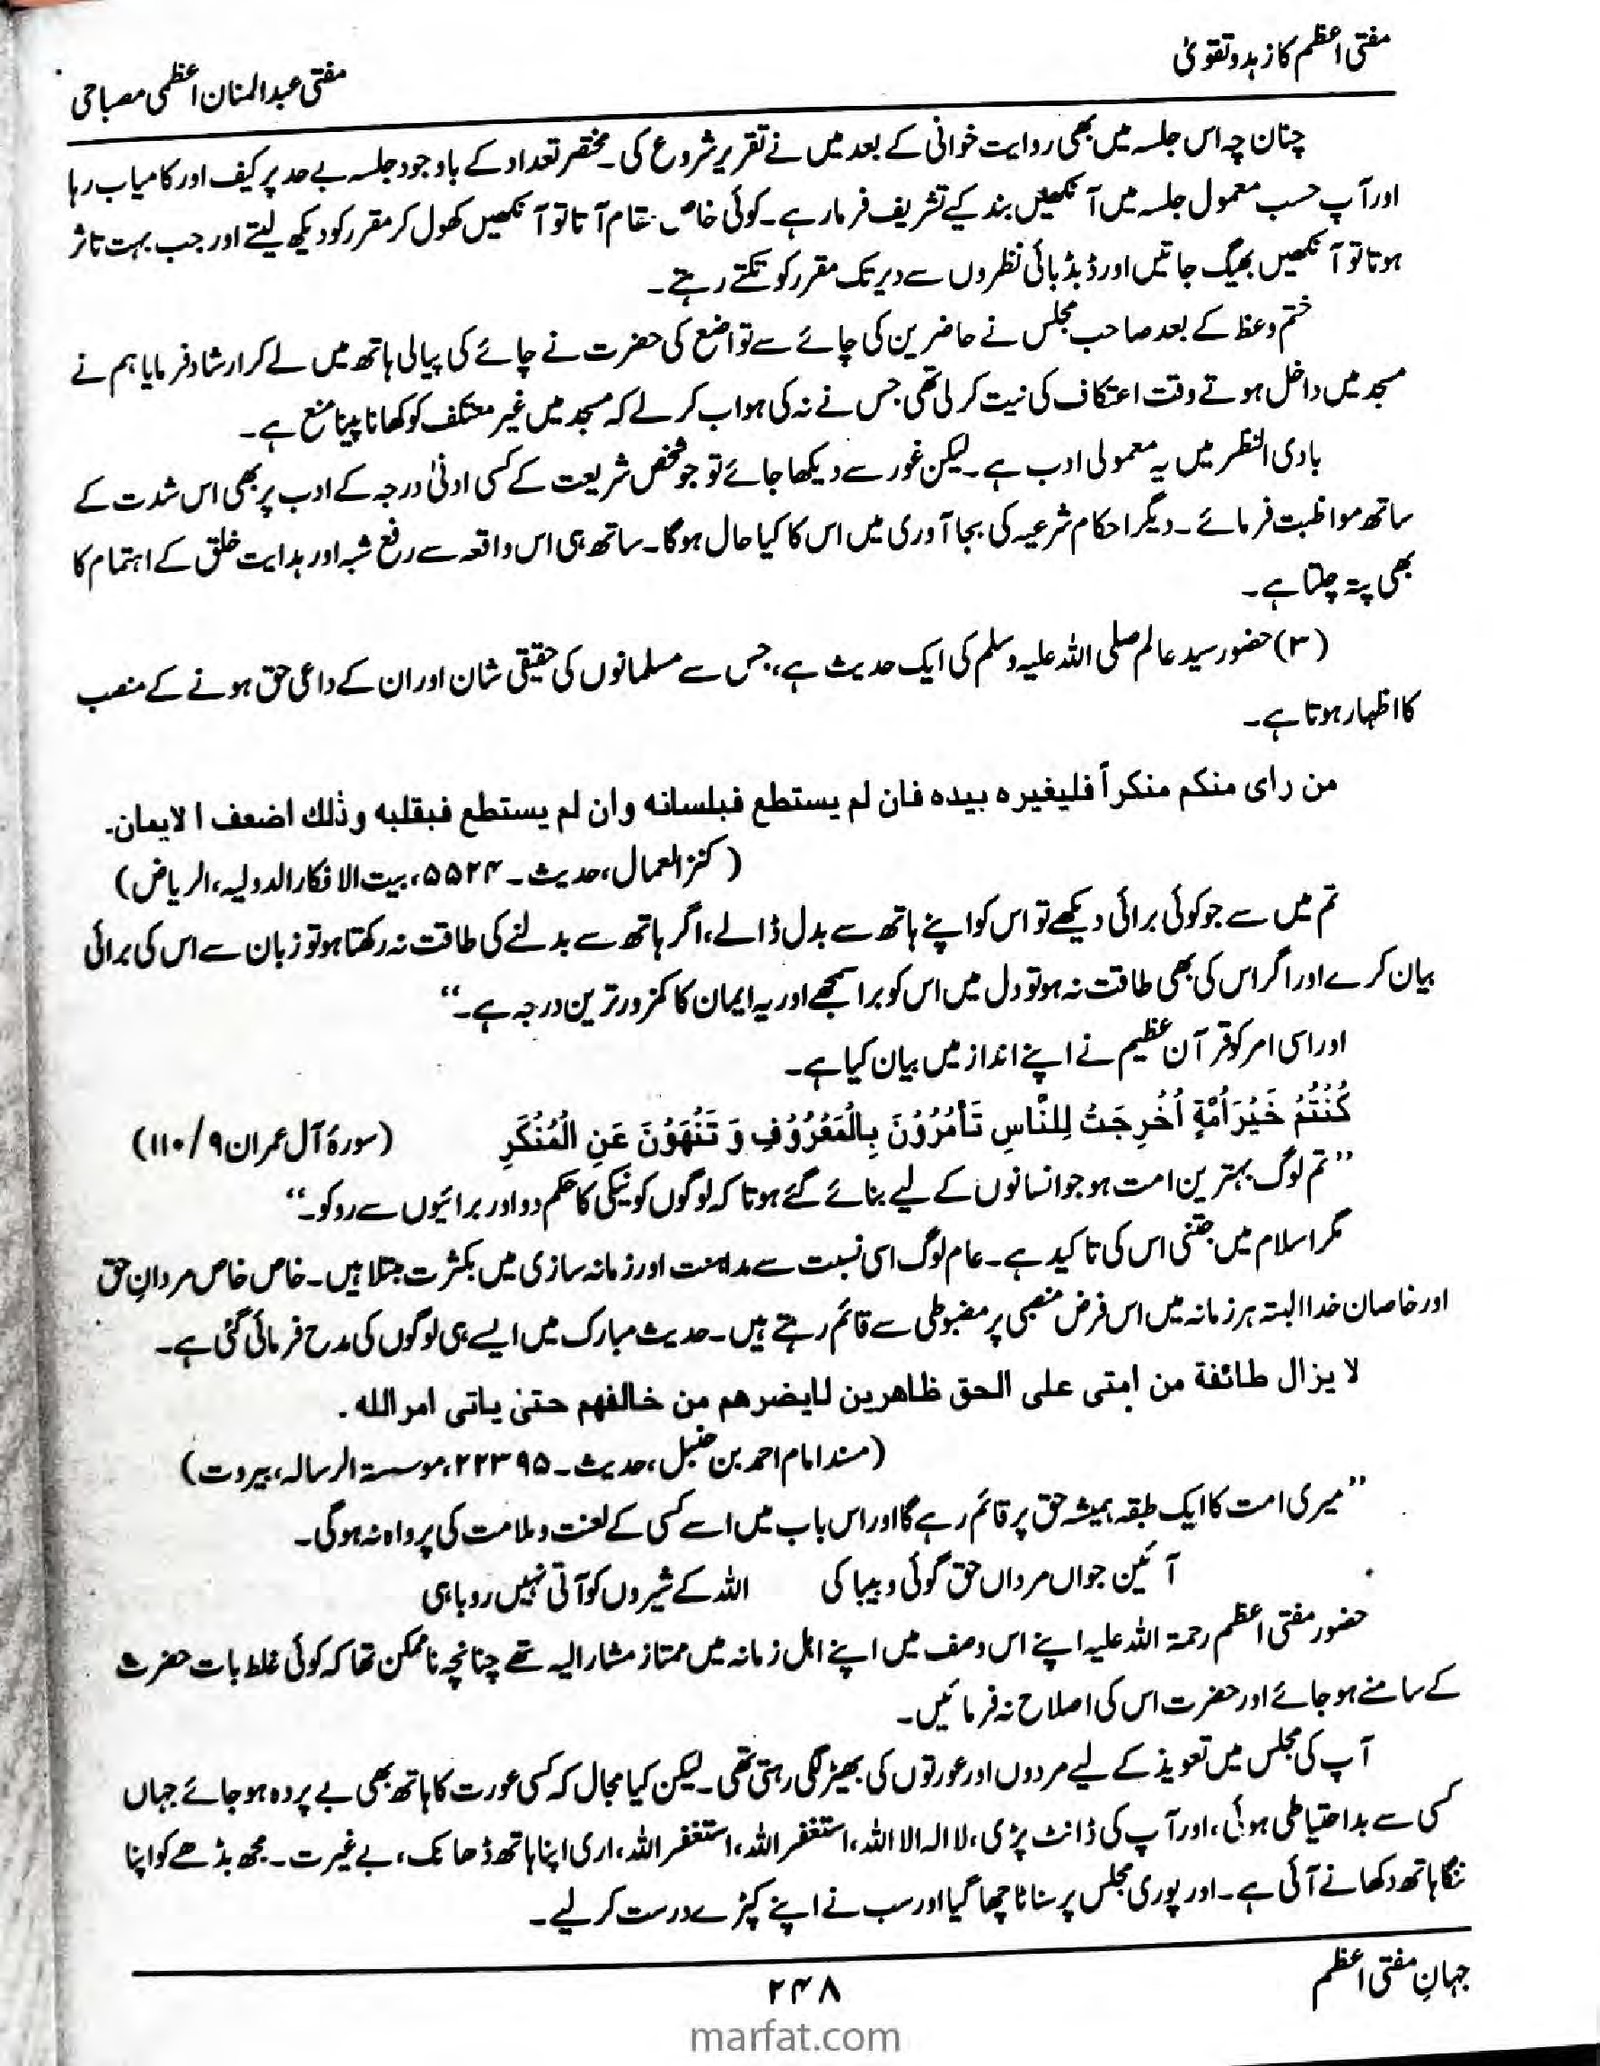 مفتی اعظم کا زہد و تقویٰ
مفتی عبدالمنان اعظمی مصباحی
چنان چہ اس جلسہ میں بھی روایت خوانی کے بعد میں نے تقریر شروع کی۔ مختصر تعداد کے باوجود جلسہ بے حد پر کیف اور کامیاب رہا
اور آپ حسب معمول جلسہ میں آنکھیں بند کیے تشریف فرما رہے۔ کوئی خاص مقام آتا تو آنکھیں کھول کر مقرر کو دیکھ لیتے اور جب بہت تاثر
ہوتا تو آنکھیں بھیگ جاتیں اور ڈبڈبائی نظروں سے دیر تک مقرر کو تکتے رہتے۔
ختم وعظ کے بعد صاحب مجلس نے حاضرین کی چائے سے تواضع کی حضرت نے چائے کی پیالی ہاتھ میں لے کر ارشاد فرمایا ہم نے
مسجد میں داخل ہوتے وقت اعتکاف کی نیت کر لی تھی جس نے نہ کی ہو اب کر لے کہ مسجد میں غیر معتکف کو کھانا پینا منع ہے۔
بادی النظر میں یہ معمولی ادب ہے۔ لیکن غور سے دیکھا جائے تو جو شخص شریعت کے کسی ادنیٰ درجہ کے ادب پر بھی اس شدت کے
ساتھ مواظبت فرمائے۔ دیگر احکام شرعیہ کی بجا آوری میں اس کا کیا حال ہوگا۔ ساتھ ہی اس واقعہ سے رفع شبہ اور ہدایت خلق کے اہتمام کا
بھی پتہ چلتا ہے۔
(۳) حضور سید عالم صلی اللہ علیہ وسلم کی ایک حدیث ہے، جس سے مسلمانوں کی حقیقی شان اور ان کے داعی حق ہونے کے منصب
کا اظہار ہوتا ہے۔
من رای منکم منکراً فلیغیرہ بیدہ فان لم یستطع فبلسانہ وان لم یستطع فبقلبہ وذٰلك اضعف الایمان.
(کنز العمال، حدیث۔ ۵۵۲۴، بیت الافکار الدولیہ، الریاض)
تم میں سے جو کوئی برائی دیکھے تو اس کو اپنے ہاتھ سے بدل ڈالے، اگر ہاتھ سے بدلنے کی طاقت نہ رکھتا ہو تو زبان سے اس کی برائی
بیان کرے اور اگر اس کی بھی طاقت نہ ہو تو دل میں اس کو برا سمجھے اور یہ ایمان کا کمزور ترین درجہ ہے۔“
اور اسی امر کو قرآن عظیم نے اپنے انداز میں بیان کیا ہے۔
كُنْتُمْ خَيْرَ اُمَّةٍ اُخْرِجَتْ لِلنَّاسِ تَأْمُرُوْنَ بِالْمَعْرُوْفِ وَ تَنْهَوْنَ عَنِ الْمُنْكَرِ (سورۂ آل عمران ۹/ ۱۱۰)
”تم لوگ بہترین امت ہو جو انسانوں کے لیے بنائے گئے ہو تا کہ لوگوں کو نیکی کا حکم دو اور برائیوں سے روکو۔“
مگر اسلام میں جتنی اس کی تاکید ہے۔ عام لوگ اسی نسبت سے مداہنت اور زمانہ سازی میں بکثرت مبتلا ہیں۔ خاص خاص مردانِ حق
اور خاصان خدا البتہ ہر زمانہ میں اس فرض منصبی پر مضبوطی سے قائم رہتے ہیں۔ حدیث مبارک میں ایسے ہی لوگوں کی مدح فرمائی گئی ہے۔
لا یزال طائفة من امتی علی الحق ظاهرین لایضرهم من خالفهم حتیٰ یاتی امر الله.
(مسند امام احمد بن حنبل، حدیث۔ ۲۲۳۹۵، موسسۃ الرسالہ، بیروت)
”میری امت کا ایک طبقہ ہمیشہ حق پر قائم رہے گا اور اس باب میں اسے کسی کے لعنت و ملامت کی پرواہ نہ ہوگی۔
آئین جواں مرداں حق گوئی و بیباکی اللہ کے شیروں کو آتی نہیں روباہی
حضور مفتی اعظم رحمۃ اللہ علیہ اپنے اس وصف میں اپنے اہل زمانہ میں ممتاز مشار الیہ تھے چنانچہ ناممکن تھا کہ کوئی غلط بات حضرت
کے سامنے ہو جائے اور حضرت اس کی اصلاح نہ فرمائیں۔
آپ کی مجلس میں تعویذ کے لیے مردوں اور عورتوں کی بھیڑ لگی رہتی تھی۔ لیکن کیا مجال کہ کسی عورت کا ہاتھ بھی بے پردہ ہو جائے جہاں
کسی سے بداحتیاطی ہوئی، اور آپ کی ڈانٹ پڑی، لا الہ الا اللہ، استغفر اللہ، استغفر اللہ، اری اپنا ہاتھ ڈھانک، بے غیرت۔ مجھ بڈھے کو اپنا
ننگا ہاتھ دکھانے آئی ہے۔ اور پوری مجلس پر سناٹا چھا گیا اور سب نے اپنے کپڑے درست کر لیے۔
جہانِ مفتی اعظم
۲۴۸
marfat.com